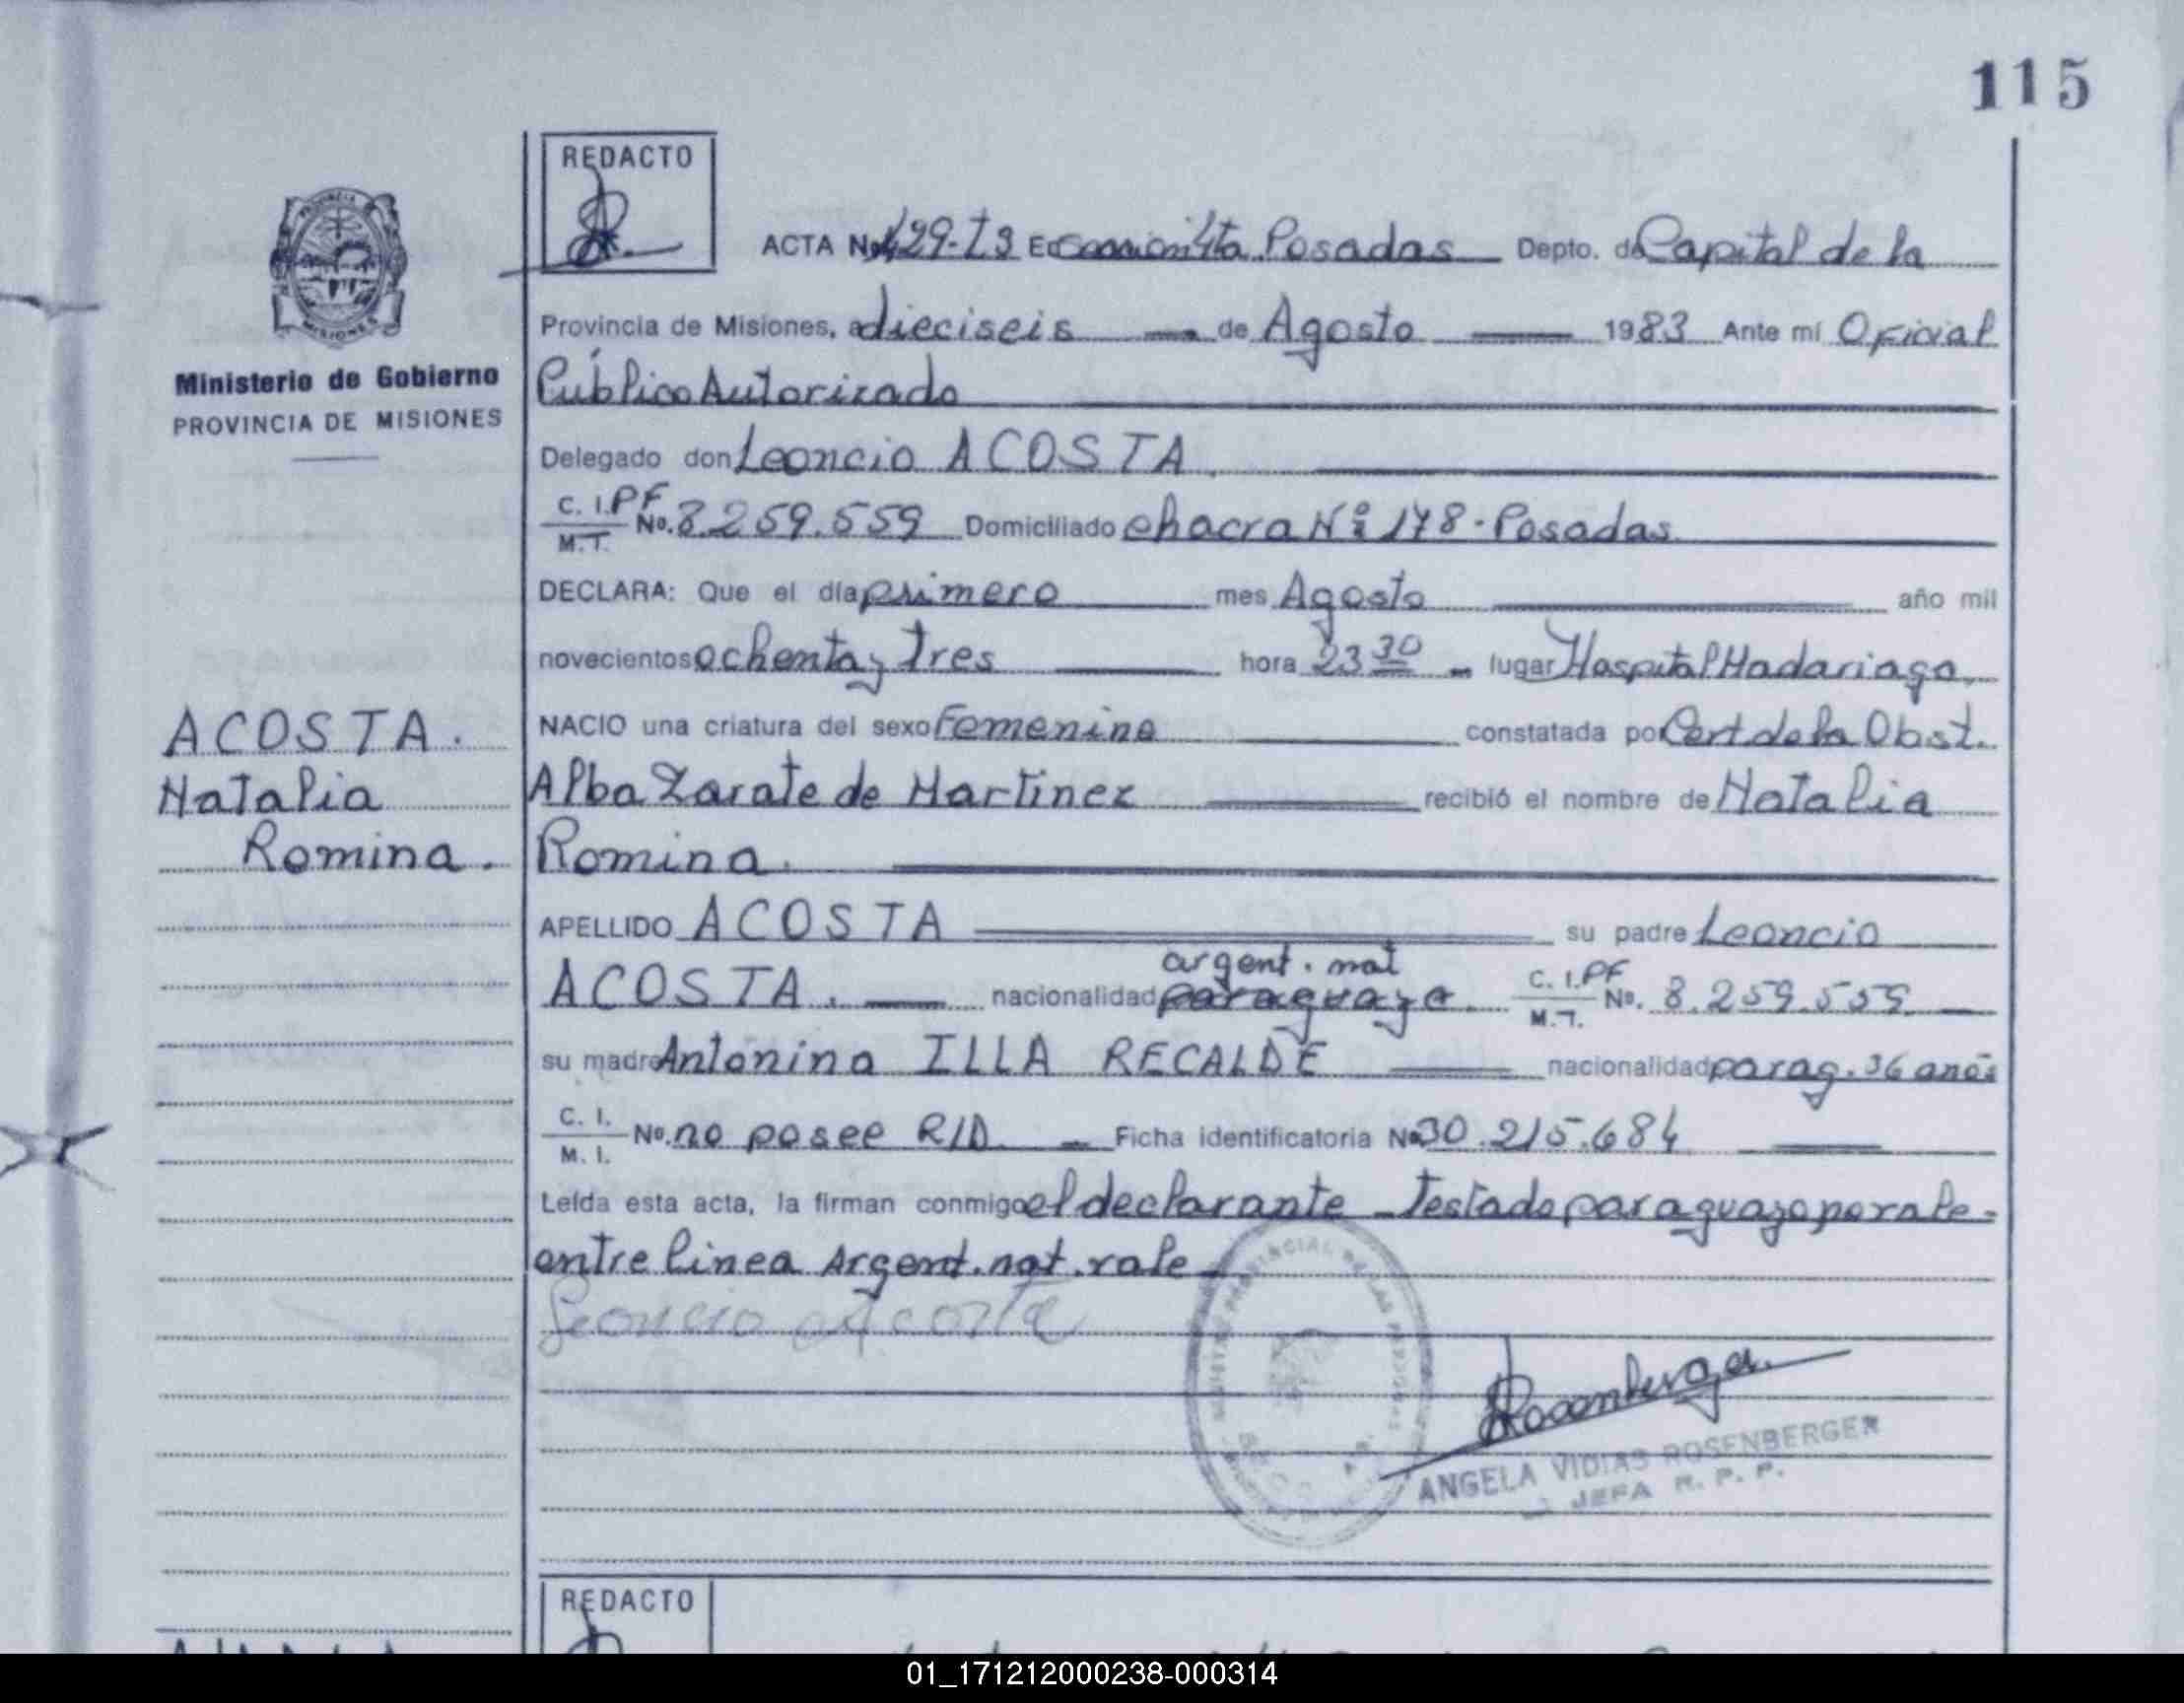 115
REDACTO
ACTA No. 429-T3 En Posadas Depto. de Capital de la
Provincia de Misiones, a dieciseis de Agosto 1983 Ante mí Oficial
Público Autorizado
Delegado don Leoncio ACOSTA.
C. I. PF
M. I. No. 8.259.559 Domiciliado chacra Nº 178 - Posadas
DECLARA: Que el día primero mes Agosto año mil
novecientos ochenta y tres hora 23 30 lugar Hospital Madariaga
NACIO una criatura del sexo Femenino constatada por Cert de la Obst.
Alba Zarate de Martinez recibió el nombre de Natalia
Romina.
APELLIDO ACOSTA su padre Leoncio
argent. nat
ACOSTA. nacionalidad paraguayo C. I. PF M. I. No. 8.259.559
su madre Antonina ILLA RECALDE nacionalidad parag. 36 años
C. I.
M. I. No. no posee R/D. Ficha identificatoria No. 30.215.684
Leída esta acta, la firman conmigo el declarante - Testado paraguayo no vale -
entre linea Argent. nat. vale
Leoncio Acosta
Rosenberger
ANGELA VIDIAS ROSENBERGER
JEFA R. P. P.
PROVINCIA
MISIONES
Ministerio de Gobierno
PROVINCIA DE MISIONES
ACOSTA.
Natalia
Romina.
REDACTO
01_171212000238-000314